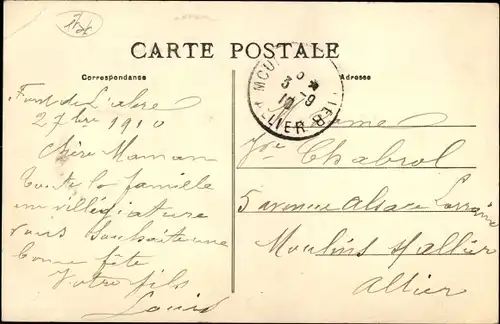 CARTE POSTALE
Correspondance
Adresse
Font de l'arbre
27bre 1910
Chère Maman
Toute la famille
en villégiature
vous souhaite une
bonne fête
Votre fils
Louis
MOU
ALLIER
Madame
Vve Chabrol
5 avenue Alsace Lorraine
Moulins s/ Allier
Allier